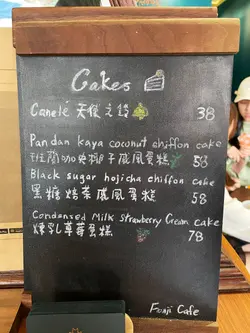 Cakes
Canelé 天使之鈴 38
Pandan kaya coconut chiffon cake
班蘭咖央椰子戚風蛋糕 58
Black sugar hojicha chiffon cake
黑糖焙茶戚風蛋糕 58
Condensed Milk Strawberry Cream cake
煉乳草莓蛋糕 78
Fuuji Cafe